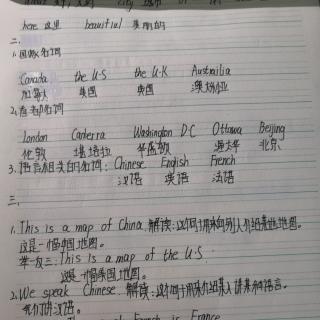 here 这里 beautiful 美丽的
二.
1.国家名词
Canada the U.S the U.K Austrilia
加拿大 美国 英国 澳大利亚
2.首都名词
London Canberra Washington D.C Ottawa Beijing
伦敦 堪培拉 华盛顿 渥太华 北京
3.语言相关的名词: Chinese English French
汉语 英语 法语
三.
1.This is a map of China. 解读:这句用来向别人介绍某地地图。
这是一幅中国地图。
举一反三: This is a map of the U.S.
这是一幅美国地图。
2.We speak Chinese. 解读:这句用来介绍某人讲某种语言。
我们讲汉语。
French is France